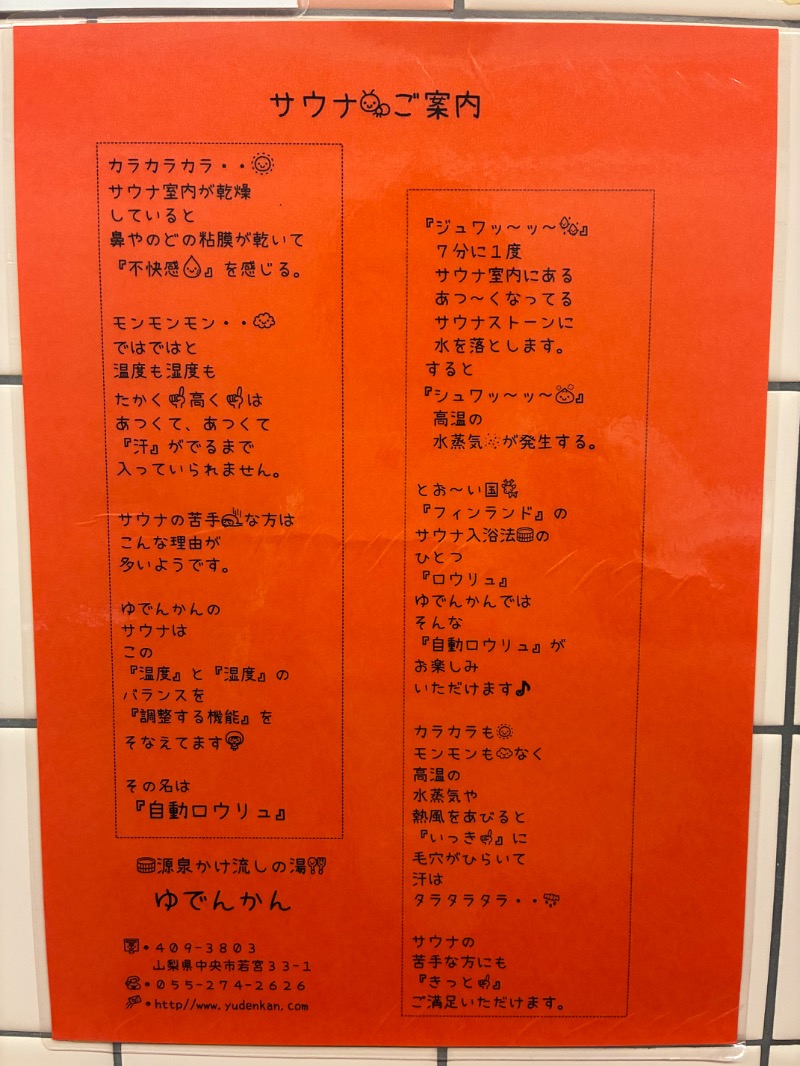 サウナご案内
カラカラカラ・・
サウナ室内が乾燥
していると
鼻やのどの粘膜が乾いて
『不快感』を感じる。
モンモンモン・・
ではではと
温度も湿度も
たかく高くは
あつくて、あつくて
『汗』がでるまで
入っていられません。
サウナの苦手な方は
こんな理由が
多いようです。
ゆでんかんの
サウナは
この
『温度』と『湿度』の
バランスを
『調整する機能』を
そなえてます
その名は
『自動ロウリュ』
『ジュワッ～ッ～』
７分に１度
サウナ室内にある
あつ～くなってる
サウナストーンに
水を落とします。
すると
『シュワッ～ッ～』
高温の
水蒸気が発生する。
とお～い国
『フィンランド』の
サウナ入浴法の
ひとつ
『ロウリュ』
ゆでんかんでは
そんな
『自動ロウリュ』が
お楽しみ
いただけます♪
カラカラも
モンモンもなく
高温の
水蒸気や
熱風をあびると
『いっき』に
毛穴がひらいて
汗は
タラタラタラ・・
サウナの
苦手な方にも
『きっと』
ご満足いただけます。
源泉かけ流しの湯
ゆでんかん
・４０９-３８０３
山梨県中央市若宮３３-１
・０５５-２７４-２６２６
・http//www.yudenkan.com